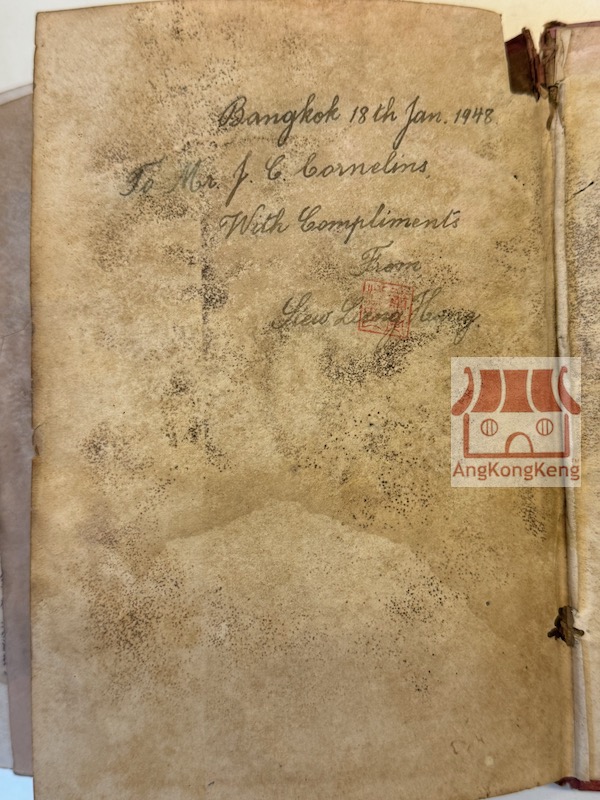 Bangkok 18th Jan. 1948
To Mr. J. C. Cornelins
With Compliments
From
Siew Lieng Hong.
AngKongKeng